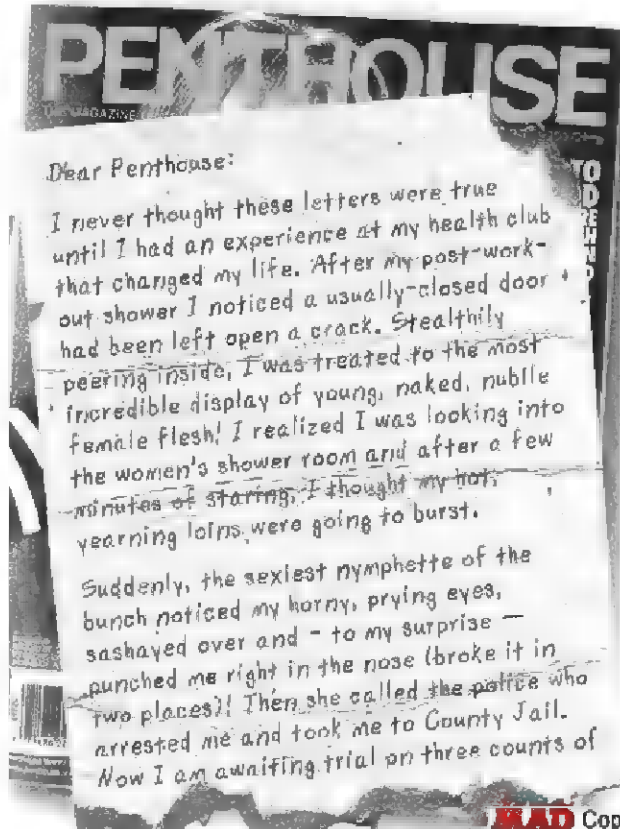 PENTHOUSE
THE MAGAZINE
TO
Dear Penthouse:
I never thought these letters were true
until I had an experience at my health club
that changed my life. After my post-work-
out shower I noticed a usually-closed door
had been left open a crack. Stealthily
peering inside, I was treated to the most
incredible display of young, naked, nubile
female flesh! I realized I was looking into
the women's shower room and after a few
minutes of staring, I thought my hot,
yearning loins were going to burst.
Suddenly, the sexiest nymphette of the
bunch noticed my horny, prying eyes,
sashayed over and - to my surprise -
punched me right in the nose (broke it in
two places)! Then she called the police who
arrested me and took me to County Jail.
Now I am awaiting trial on three counts of
MAD Cop